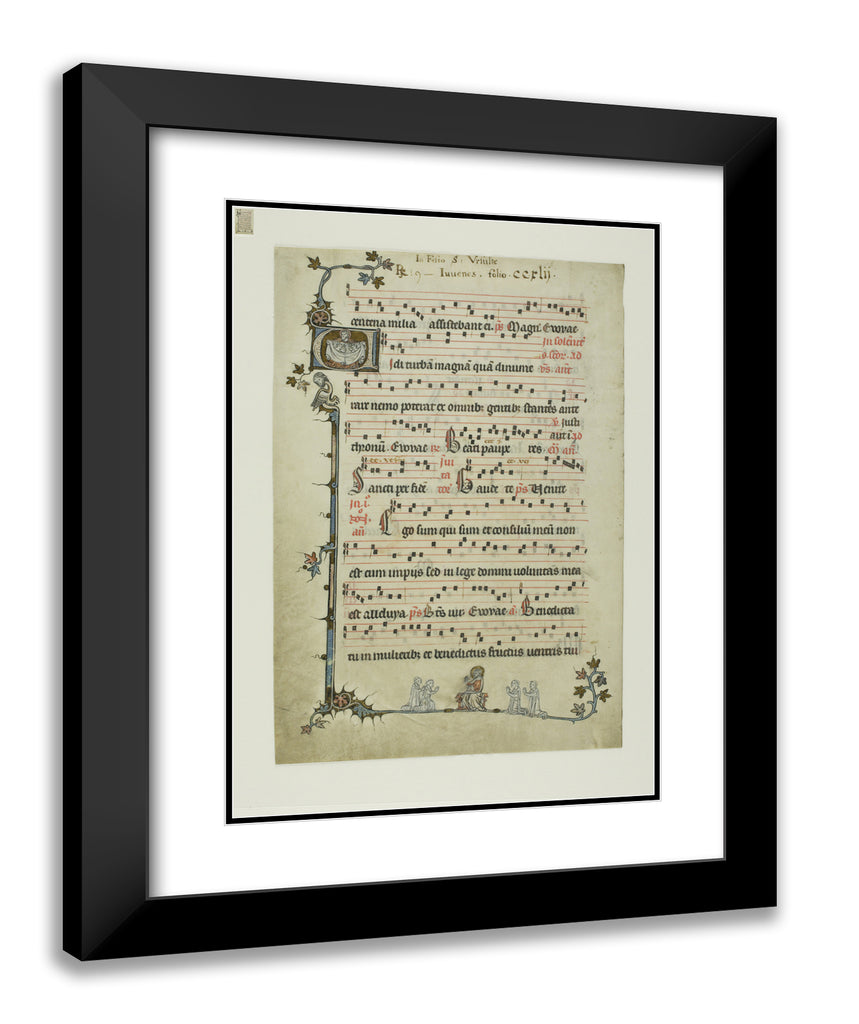 In Festo S. Vrsule
℟ 9 — Iuuenes. folio. ccxlij.
centena milia assistebant ei. ps Magn̄. Evovae
In solēnit
o. scor. ad
Uidi turbā magnā quā dinume vs. anē
rare nemo poterat ex omnib; gentib; stantes ante
v. justi
thronū. Evovae Beati paupe res. ē. an.
Sancti per fidē Gaude te ps Venite
an. Ego sum qui sum et consiliū meū non
est cum impijs sed in lege domini voluntas mea
est alleluya. ps Bts uir. Evovae a. Benedicta
tu in mulierib; et benedictus fructus uentris tui